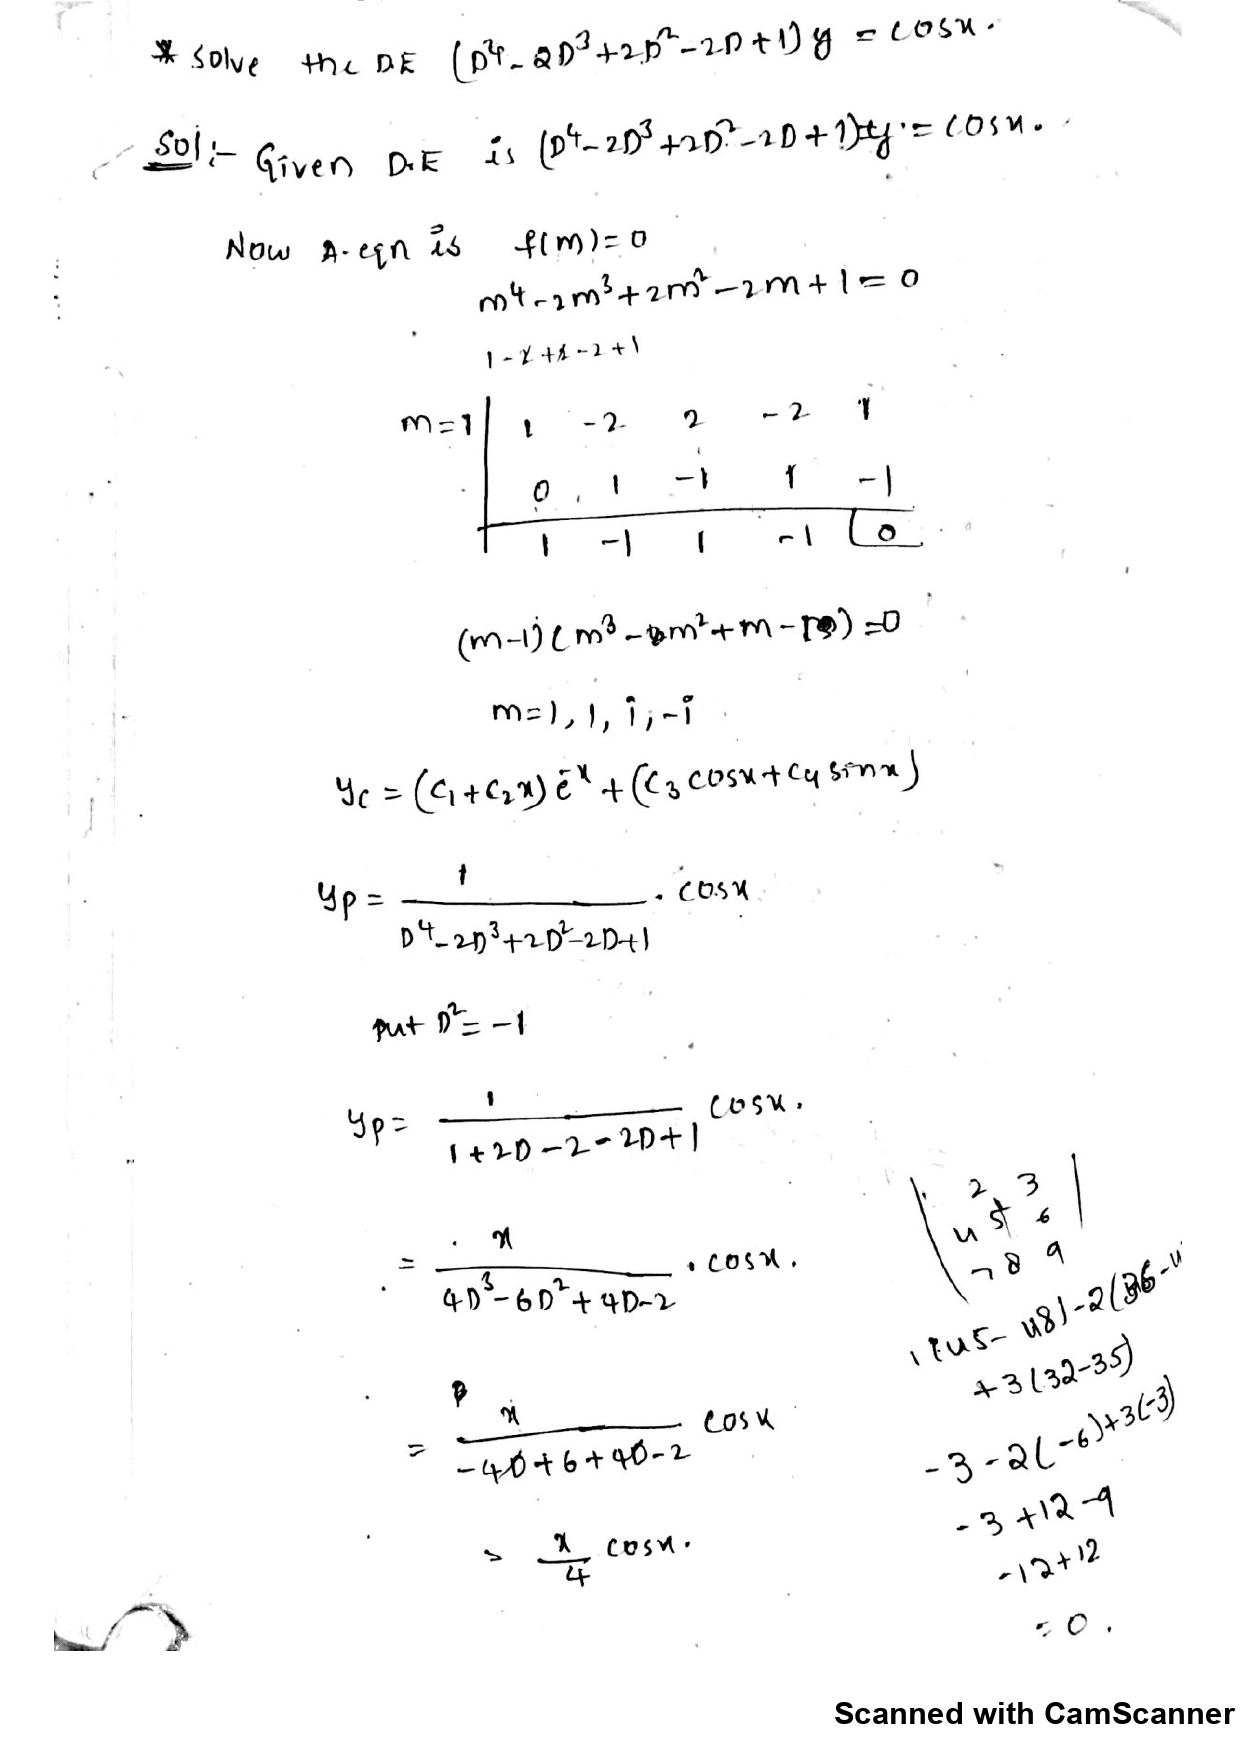 * Solve the DE (D⁴-2D³+2D²-2D+1)y = cosx.
Sol:- Given D.E is (D⁴-2D³+2D²-2D+1)y = cosx.
Now A.eqn is f(m)=0
m⁴-2m³+2m²-2m+1=0
1-2+2-2+1
m=1 | 1 -2 2 -2 1
0 1 -1 1 -1
1 -1 1 -1 0
(m-1)(m³-m²+m-1)=0
m=1, 1, i, -i
yc = (c₁+c₂x)e⁻ˣ + (c₃cosx+c₄sinx)
yp = 1/(D⁴-2D³+2D²-2D+1) . cosx
put D²=-1
yp = 1/(1+2D-2-2D+1) cosx.
= x/(4D³-6D²+4D-2) . cosx.
= x/(-4D+6+4D-2) cosx
= x/4 cosx.
2 3
4 5 6
7 8 9
1(45-48)-2(36-4
+3(32-35)
-3-2(-6)+3(-3)
-3+12-9
-12+12
=0.
Scanned with CamScanner